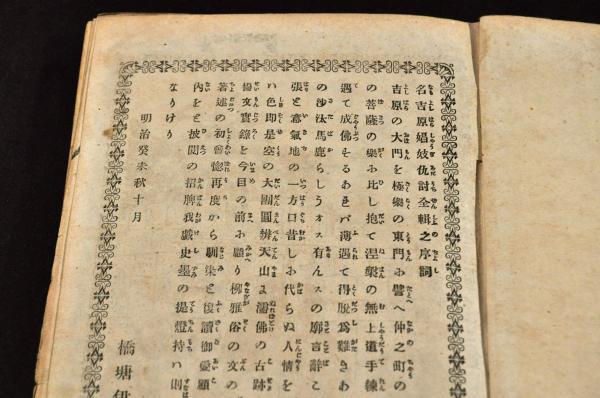 名吉原娼妓仇討全輯之序詞
吉原の大門を極樂の東門お譬へ仲之町の
の菩薩の樂お比し抱て涅槃の無上道手練
遇て成佛そるあれバ薄遇て得脱爲難きあ
の沙汰馬鹿らしうオス有んスの廓言辭こ
張と意氣地の一方口昔しお代らぬ人情を
ハ色即是空の大團圓辨天山よ濡佛の古跡
倫文實錄を今目の前お顧り柳雅俗の文の
著述の初曾憶再度から馴染と復讀御愛顧
內をと披閱の招牌我戯史墨の提燈持ハ則
なりけり
明治癸未秋十月
橋塘